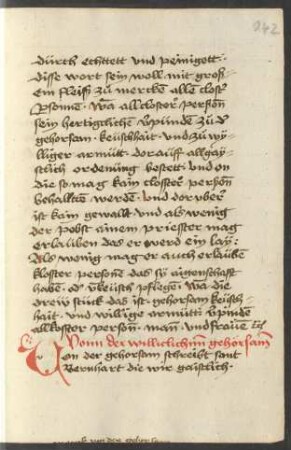 242
durch echttett und peinigett :
disse wort sein woll mit groß
em fleiß zu mercke alle clost
Psonne . Wā all closter person
sein hertigclichē v̄punde zu d
gehorsam . keuschhait . und zu wy
lliger armutt . dorauff all gay
stlich ordenung bestett . und on
die so mag kain closster person
behalltē werde . und doruber
ist kain gewallt . und als wenig
der pobst ainem priesster mag
erlauben das er werd ein lay .
Als wenig mag er auch erlaubē
kloster persone das sy aigenschaft
habe . od vkeusch pflege . Wā die
drey stuck das ist . gehorsam keusch
hait . und willige armutt v̄pinde
all kloster person . man . und frauē
Vonn der willicklichnn gehorsam
Von der gehorsam schreibt sant
Bernhart die wir gaistlich .